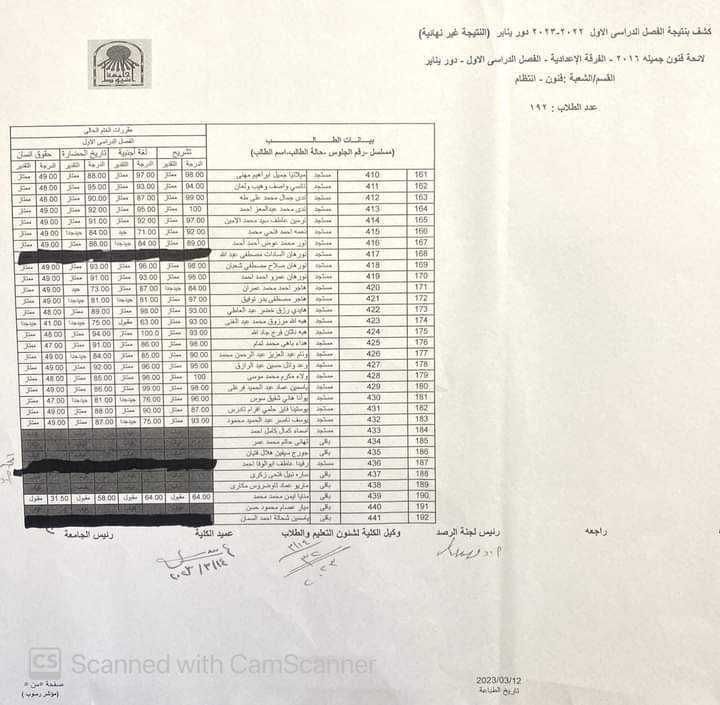 كشف بنتيجة الفصل الدراسى الاول ٢٠٢٢-٢٠٢٣ دور يناير (النتيجة غير نهائية)
لائحة فنون جميله ٢٠١٦ - الفرقة الإعدادية - الفصل الدراسى الاول - دور يناير
القسم/الشعبة :فنون - انتظام
عدد الطلاب : ١٩٢
جامعة أسيوط
بيانات الطالب
(مسلسل -رقم الجلوس -حالة الطالب-اسم الطالب)
مقررات العام الحالى
الفصل الدراسى الأول
تشريح لغة أجنبية تاريخ الحضارة حقوق انسان
الدرجة التقدير الدرجة التقدير الدرجة التقدير الدرجة التقدير
161 410 مستجد ميلانيا جميل ابراهيم مهنى 98.00 ممتاز 97.00 ممتاز 88.00 ممتاز 49.00 ممتاز
162 411 مستجد نانسي واصف وهيب ولهان 94.00 ممتاز 93.00 ممتاز 95.00 ممتاز 48.00 ممتاز
163 412 مستجد ندى جمال محمد على طه 99.00 ممتاز 87.00 ممتاز 90.00 ممتاز 48.00 ممتاز
164 413 مستجد ندى محمد عبدالمعز احمد 100 ممتاز 95.00 ممتاز 92.00 ممتاز 49.00 ممتاز
165 414 مستجد نرمين عاطف سيد محمد الامين 97.00 ممتاز 92.00 ممتاز 91.00 ممتاز 49.00 ممتاز
166 415 مستجد نعمه احمد فتحي محمد 92.00 ممتاز 71.00 جيد 84.00 جيدجدا 49.00 ممتاز
167 416 مستجد نور محمد عوض أحمد أحمد 89.00 ممتاز 84.00 جيدجدا 86.00 ممتاز 49.00 ممتاز
168 417 مستجد نورهان السادات مصطفى عبد الله
169 418 مستجد نورهان صلاح مصطفي شعبان 98.00 ممتاز 96.00 ممتاز 93.00 ممتاز 49.00 ممتاز
170 419 مستجد نورهان عمرو احمد احمد 98.00 ممتاز 93.00 ممتاز 91.00 ممتاز 49.00 ممتاز
171 420 مستجد هاجر احمد محمد عمران 84.00 جيدجدا 87.00 ممتاز 73.00 جيد 49.00 ممتاز
172 421 مستجد هاجر مصطفى بدر توفيق 97.00 ممتاز 81.00 جيدجدا 81.00 جيدجدا 49.00 ممتاز
173 422 مستجد هايدي رزق خضر عبد العاطي 93.00 ممتاز 98.00 ممتاز 89.00 ممتاز 48.00 ممتاز
174 423 مستجد هبه الله مرزوق محمد عبد الغنى 93.00 ممتاز 63.00 مقبول 75.00 جيدجدا 41.00 جيدجدا
175 424 مستجد هبه ناثان فرج جاد الله 93.00 ممتاز 100.0 ممتاز 94.00 ممتاز 48.00 ممتاز
176 425 مستجد هناء باهى محمد تمام 98.00 ممتاز 86.00 ممتاز 91.00 ممتاز 47.00 ممتاز
177 426 مستجد وئام عبد العزيز عبد الرحمن محمد 90.00 ممتاز 85.00 ممتاز 84.00 جيدجدا 49.00 ممتاز
178 427 مستجد وعد وائل حسين عبد الرازق 95.00 ممتاز 96.00 ممتاز 92.00 ممتاز 49.00 ممتاز
179 428 مستجد ولاء مكرم محمد موسى 100 ممتاز 96.00 ممتاز 85.00 ممتاز 48.00 ممتاز
180 429 مستجد ياسمين عماد عبد الحميد فرغلى 98.00 ممتاز 99.00 ممتاز 86.00 ممتاز 49.00 ممتاز
181 430 مستجد يوأنا هاني شفيق سوس 96.00 ممتاز 76.00 جيدجدا 81.00 جيدجدا 47.00 ممتاز
182 431 مستجد يوستينا فايز حلمي افرام تادرس 87.00 ممتاز 90.00 ممتاز 88.00 ممتاز 49.00 ممتاز
183 432 مستجد يوسف ناصر عبد الحميد محمود 93.00 ممتاز 75.00 جيدجدا 87.00 ممتاز 49.00 ممتاز
184 433 مستجد اسماء كمال كامل احمد
185 434 باقى تهانى حاتم محمد عمر
186 435 باقى جورج سيفين هلال فتيان
187 436 مستجد رفيدا عاطف ابوالوفا احمد
188 437 باقى ساره نبيل فتحى زكرى
189 438 باقى ماريو عماد تاوضروس مكارى
190 439 باقى منايا ايمن محمد محمد 64.00 مقبول 64.00 مقبول 58.00 مقبول 31.50 مقبول
191 440 باقى ميار عصام محمود حسن
192 441 باقى ياسين شحاتة احمد السمان
راجعه رئيس لجنة الرصد وكيل الكلية لشئون التعليم والطلاب عميد الكلية رئيس الجامعة
CS Scanned with CamScanner
2023/03/12
تاريخ الطباعة
صفحة «من »
(مؤشر رسوب )